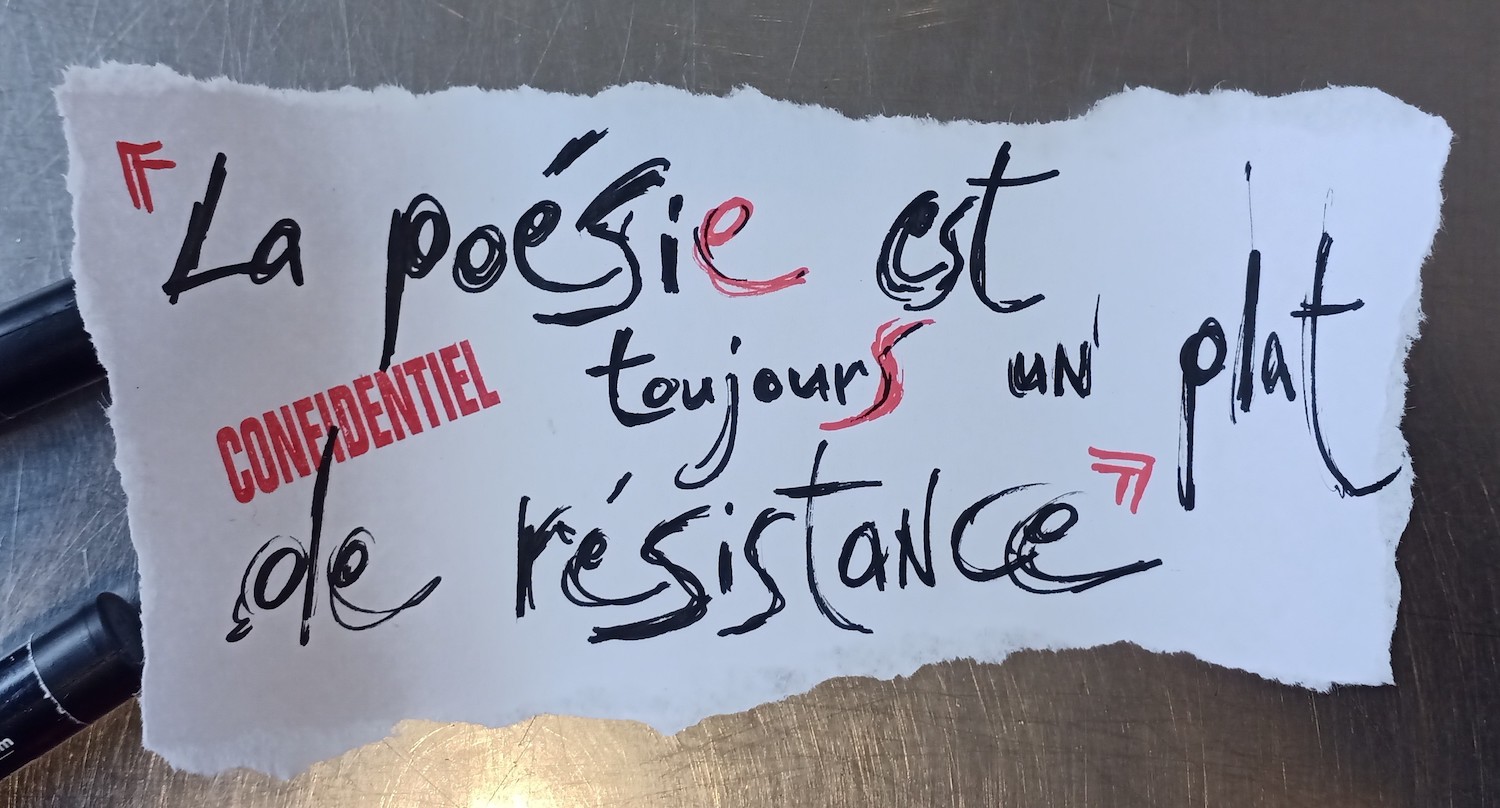 « La poésie est
toujours un plat
CONFIDENTIEL
de résistance »
m